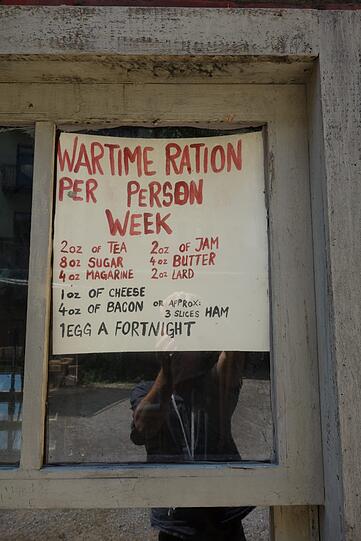 WARTIME RATION
PER PERSON
WEEK
2oz OF TEA 2oz OF JAM
8oz SUGAR 4oz BUTTER
4oz MAGARINE 2oz LARD
1oz OF CHEESE
4oz OF BACON OR APPROX:
3 SLICES HAM
1EGG A FORTNIGHT